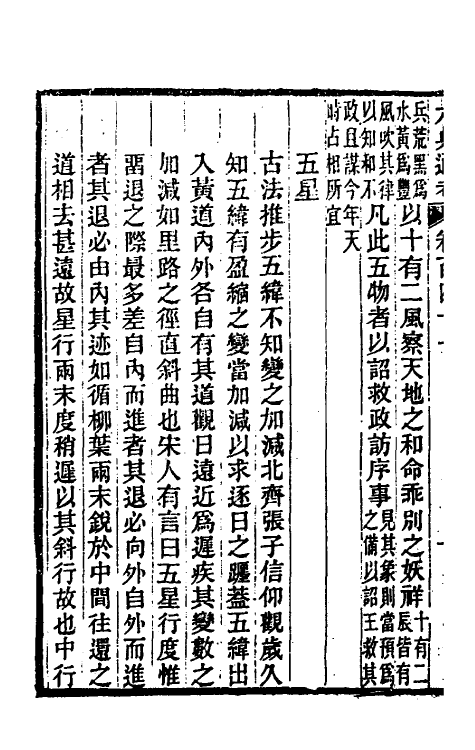 兵荒黑爲水黃爲豐以十有二風察天地之和命乖別之妖祥十有二辰皆有
風吹其律以知和不凡此五物者以詔救政訪序事見其象則當預爲之備以詔王救其
政且謀今年天時占相所宜
五星
古法推步五緯不知變之加減北齊張子信仰觀歲久
知五緯有盈縮之變當加減以求逐日之躔蓋五緯出
入黃道內外各自有其道觀日遠近爲遲疾其變數之
加減如里路之徑直斜曲也宋人有言曰五星行度惟
畱退之際最多差自內而進者其退必向外自外而進
者其退必由內其迹如循柳葉兩末銳於中間往還之
道相去甚遠故星行兩末度稍遲以其斜行故也中行